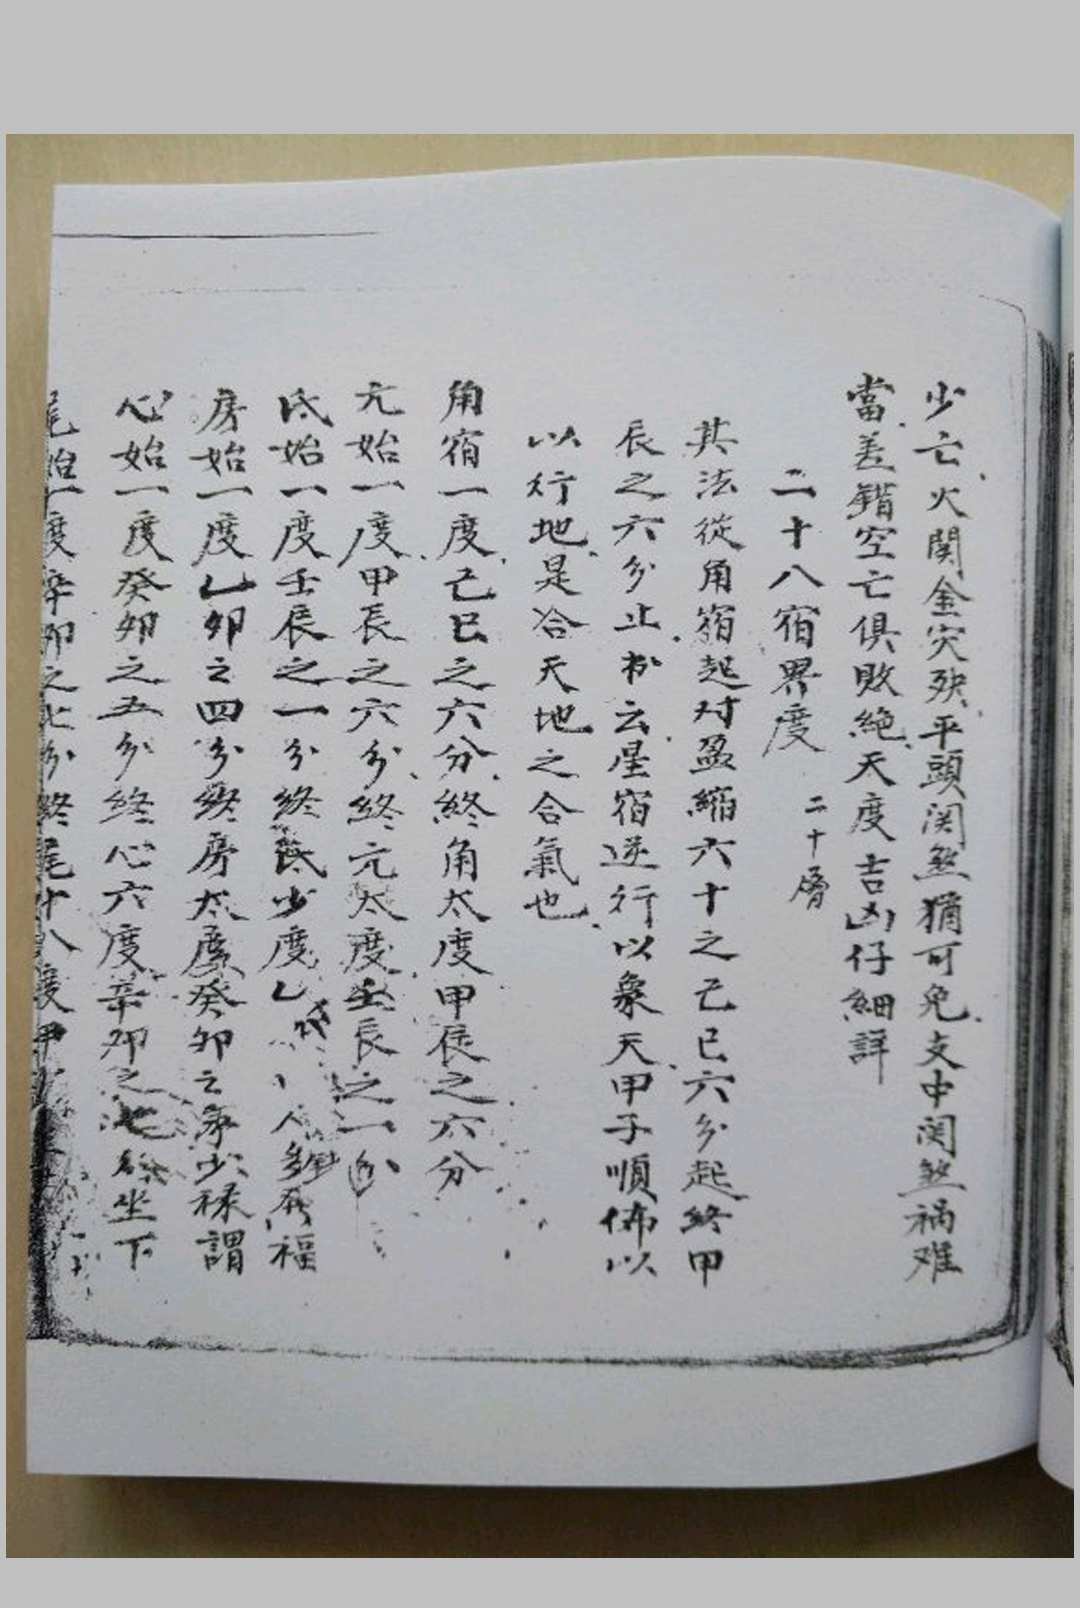 少亡火関金灾殃平頭関煞猶可免支中関煞祸难
當差錯空亡俱敗絶天度吉凶仔細詳
二十八宿界度 二十層
其法從角宿起对盈縮六十之己巳六分起終甲
辰之六分止出云星宿逆行以象天甲子順佈以
以行地是合天地之合氣也
角宿一度己巳之六分終角太度甲辰之六分
亢始一度甲辰之六分終亢太度壬辰之一分
氐始一度壬辰之一分終氐少度乙 人多有福
房始一度乙卯之四分終房太度癸卯之 少禄謂
心始一度癸卯之五分終心六度辛卯之七 坐下
尾始一度辛卯之七分終尾十八度甲